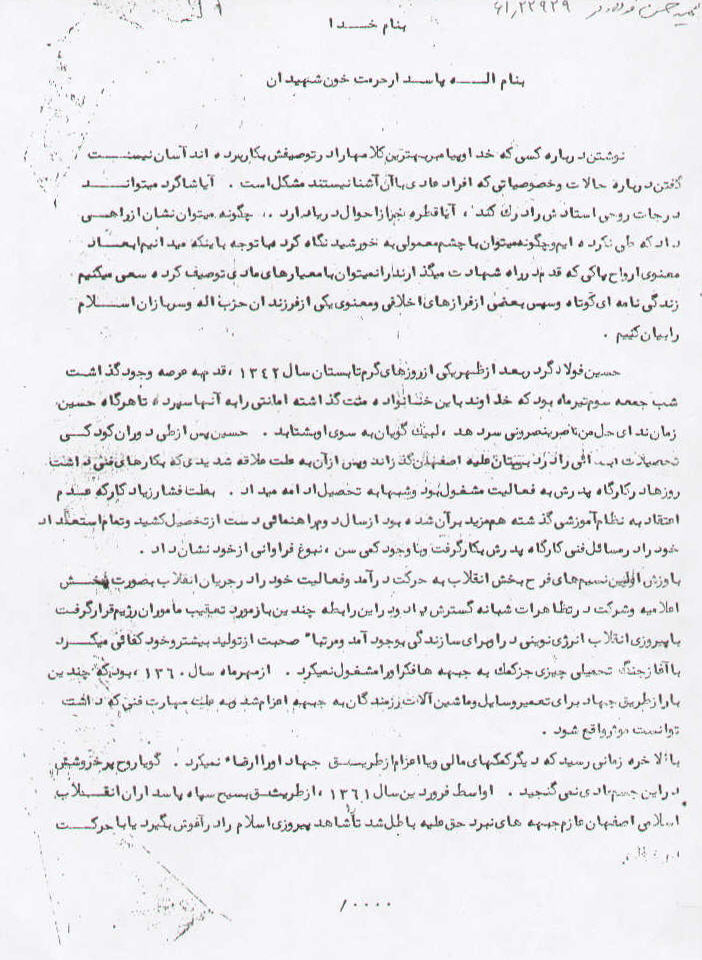 شهید حسن فولادگر ۶۱٫۲۲۹۲۹
بنام خدا
بنام الله پاسدار حرمت خون شهیدان
نوشتن درباره کسی که خدا و پیامبر بهترین کلامها را در توصیفش بکار برده اند آسان نیست
گفتن درباره حالات و خصوصیاتی که افراد عادی با آن آشنا نیستند مشکل است . آیا شاگرد میتواند
درجات روحی استادش را درک کند ، آیا قطره نیز از احوال دریا دارد .. چگونه میتوان نشان از راهی
داد که طی نکرده ایم و چگونه میتوان با چشم معمولی به خورشید نگاه کرد ما با توجه باینکه میدانیم ابعاد
معنوی ارواح پاکی که قدم در راه شهادت میگذارند را نمیتوان با معیارهای مادی توصیف کرده سعی میکنیم
زندگی نامه ای کوتاه و سپس بعضی از فرازهای اخلاقی و معنوی یکی از فرزندان حزب اله و سربازان اسلام
را بیان کنیم .
حسین فولادگر بعد از ظهر یکی از روزهای گرم تابستان سال ۱۳۴۲ ، قدم به عرصه وجود گذاشت
شب جمعه سوم تیرماه بود که خداوند با این خانواده منت گذاشته امانتی را به آنها سپرد تا هرگاه حسین
زمان ندای حل من ناصر ینصرونی سر دهد ، لبیک گویان به سوی او بشتابد . حسین پس از طی دوران کودکی
تحصیلات ابتدائی را در دبستان علیه اصفهان گذراند و پس از آن به علت علاقه شدیدی که بکارهای فنی داشت
روزها در کارگاه پدرش به فعالیت مشغول بود و شبها به تحصیل ادامه میداد . بعلت فشار زیاد کار که عدم
اعتقاد به نظام آموزشی گذشته هم مزید بر آن شده بود از سال دوم راهنمائی دست از تحصیل کشید و تمام استعداد
خود را در مسائل فنی کارگاه پدرش بکار گرفت و با وجود کمی سن ، نبوغ فراوانی از خود نشان داد .
با وزش اولین نسیم های فرح بخش انقلاب به حرکت درآمد و فعالیت خود را در جریان انقلاب بصورت پخش
اعلامیه و شرکت در تظاهرات شبانه گسترش داد و در این رابطه چندین بار مورد تعقیب ماموران رژیم قرار گرفت
با پیروزی انقلاب انرژی نوینی در او برای سازندگی بوجود آمد و مرتبا" صحبت از تولید بیشتر و خود کفائی میکرد
با آغاز جنگ تحمیلی چیزی جز کمک به جبهه ها فکر او را مشغول نمیکرد . از مهرماه سال ۱۳۶۰ ، بود که چندین
بار از طریق جهاد برای تعمیر وسایل و ماشین آلات رزمندگان به جبهه اعزام شد و به علت مهارت فنی که داشت
توانست موثر واقع شود .
بالاخره زمانی رسید که دیگر کمکهای مالی و یا اعزام از طریق جهاد او را ارضاء نمیکرد . گویا روح پر خروشش
در این جسم مادی نمی گنجید . اواسط فروردین سال ۱۳۶۱ ، از طریق بسیج سپاه پاسداران انقلاب
اسلامی اصفهان عازم جبهه های نبرد حق علیه باطل شد تا شاهد پیروزی اسلام را در آغوش بگیرد یا با حرکت
/۰۰۰۰